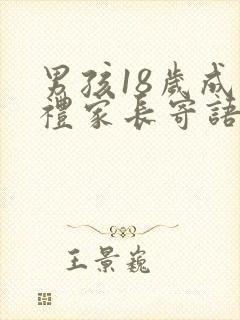 男孩18歲成
禮家長寄語
王景巍